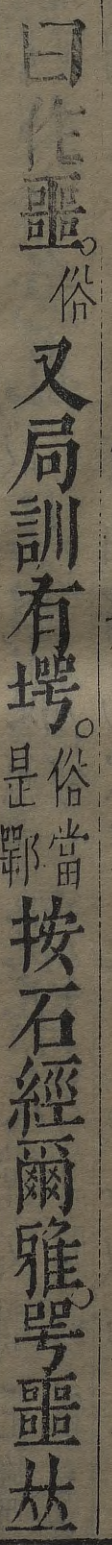 曰作噩。俗又局訓有堮。俗當是鄂按石經爾雅。咢噩𠀤